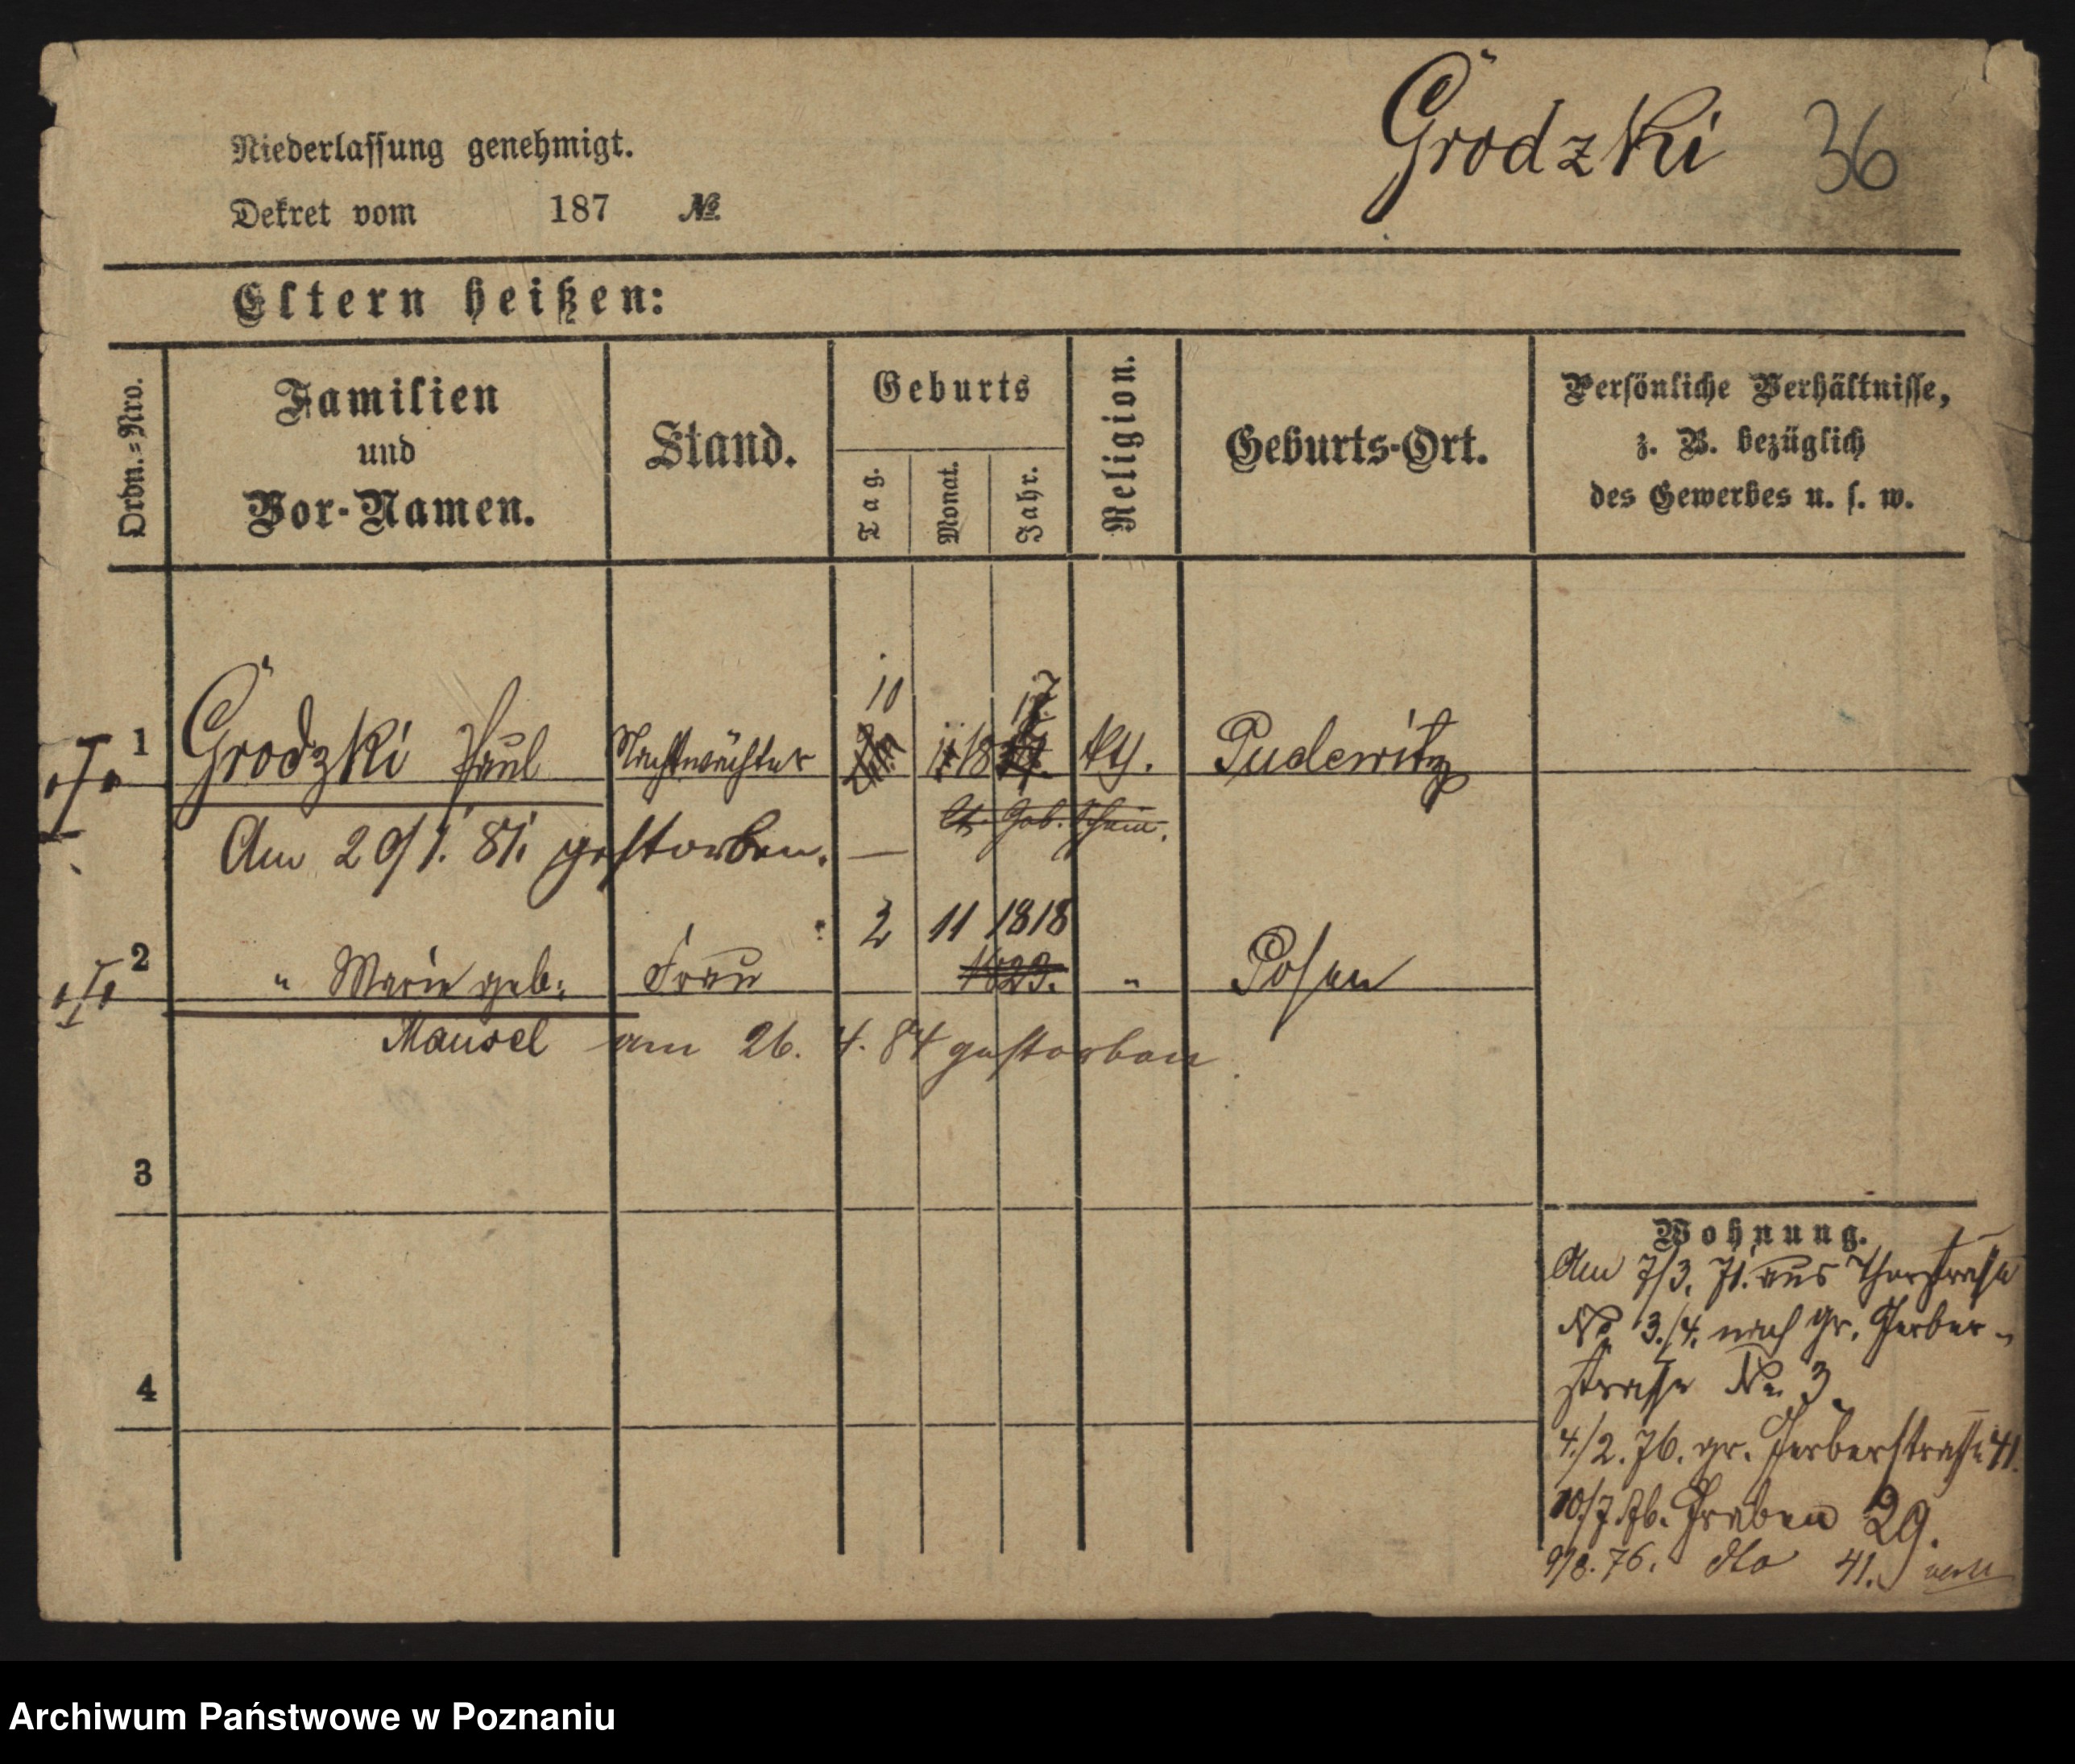 Grodzki 36
Niederlassung genehmigt.
Dekret vom 187 №
Eltern heißen:
Ordn.-Nro.
Familien
und
Vor-Namen.
Stand.
Geburts
Tag.
Monat.
Jahr.
Religion.
Geburts-Ort.
Persönliche Verhältnisse,
z. B. bezüglich
des Gewerbes u. s. w.
10
1 Grodzki Paul Nachtwächter 18 kth. Pudewitz
lt. Geb. Schein.
Am 20/1. 81. gestorben.
2 11 1818
2 " Marie geb. Frau 1823. " Posen
Mausel am 26. 4. 84 gestorben
3
4
Wohnung.
Am 7/3. 71. aus Thorstraße
No 3./4. nach gr. Gerber-
straße No 3.
4./2. 76. gr. Gerberstraße 41.
10/7. 76. Graben 29.
9/8. 76. dto 41.
Archiwum Państwowe w Poznaniu